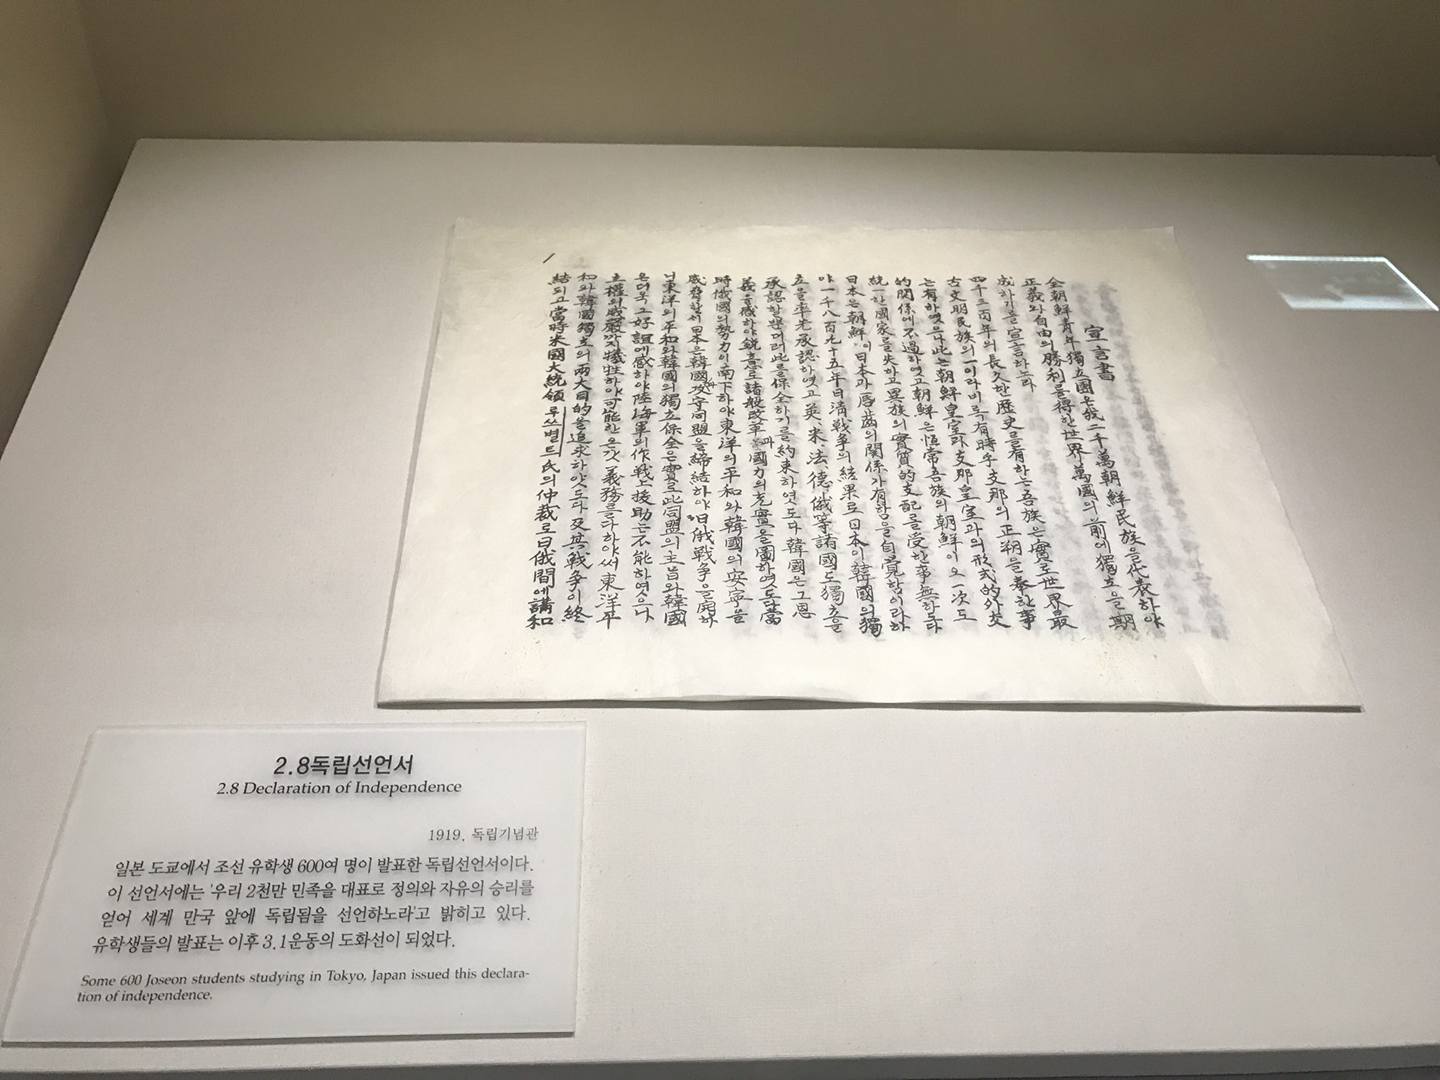 宣言書
全朝鮮青年獨立團은我二千萬朝鮮民族을代表하야
正義와自由의勝利를得한世界萬國의前에獨立을期
成하기를宣言하노라
四千三百年의長久한歷史를有한吾族은實로世界最
古文明民族의一이라비록有時乎支那의正朔을奉한事
는有하엿으나此는朝鮮皇室과支那皇室과의形式的外交
的關係에不過하엿고朝鮮은恒常吾族의朝鮮이오一次도
統一한國家를失하고異族의實質的支配를受한事無하도다
日本은朝鮮이日本과唇齒의關係가有함을自覺함이라하
야一千八百九十五年日清戰爭의結果로日本이韓國의獨
立을率先承認하엿고英、米、法、德、俄等諸國도獨立을
承認할뿐더러此를保全하기를約束하엿도다韓國은그恩
義를感하야銳意로諸般改革과國力의充實을圖하엿도다當
時俄國의勢力이南下하야東洋의平和와韓國의安寧을
威脅할새日本은韓國과攻守同盟을締結하야日俄戰爭을開하
니東洋의平和와韓國의獨立保全은實로此同盟의主旨와韓國
은더욱그好誼에感하야陸海軍의作戰上援助는不能하엿으나
主權의威嚴까지犧牲하야可能한온갓義務를다하야써東洋平
和와韓國獨立의兩大目的을追求하얏도다及其戰爭이終
結되고當時米國大統領루쓰벨트氏의仲裁로日俄間에講和
2.8독립선언서
2.8 Declaration of Independence
1919, 독립기념관
일본 도쿄에서 조선 유학생 600여 명이 발표한 독립선언서이다.
이 선언서에는 '우리 2천만 민족을 대표로 정의와 자유의 승리를
얻어 세계 만국 앞에 독립됨을 선언하노라'고 밝히고 있다.
유학생들의 발표는 이후 3.1운동의 도화선이 되었다.
Some 600 Joseon students studying in Tokyo, Japan issued this declara-
tion of independence.